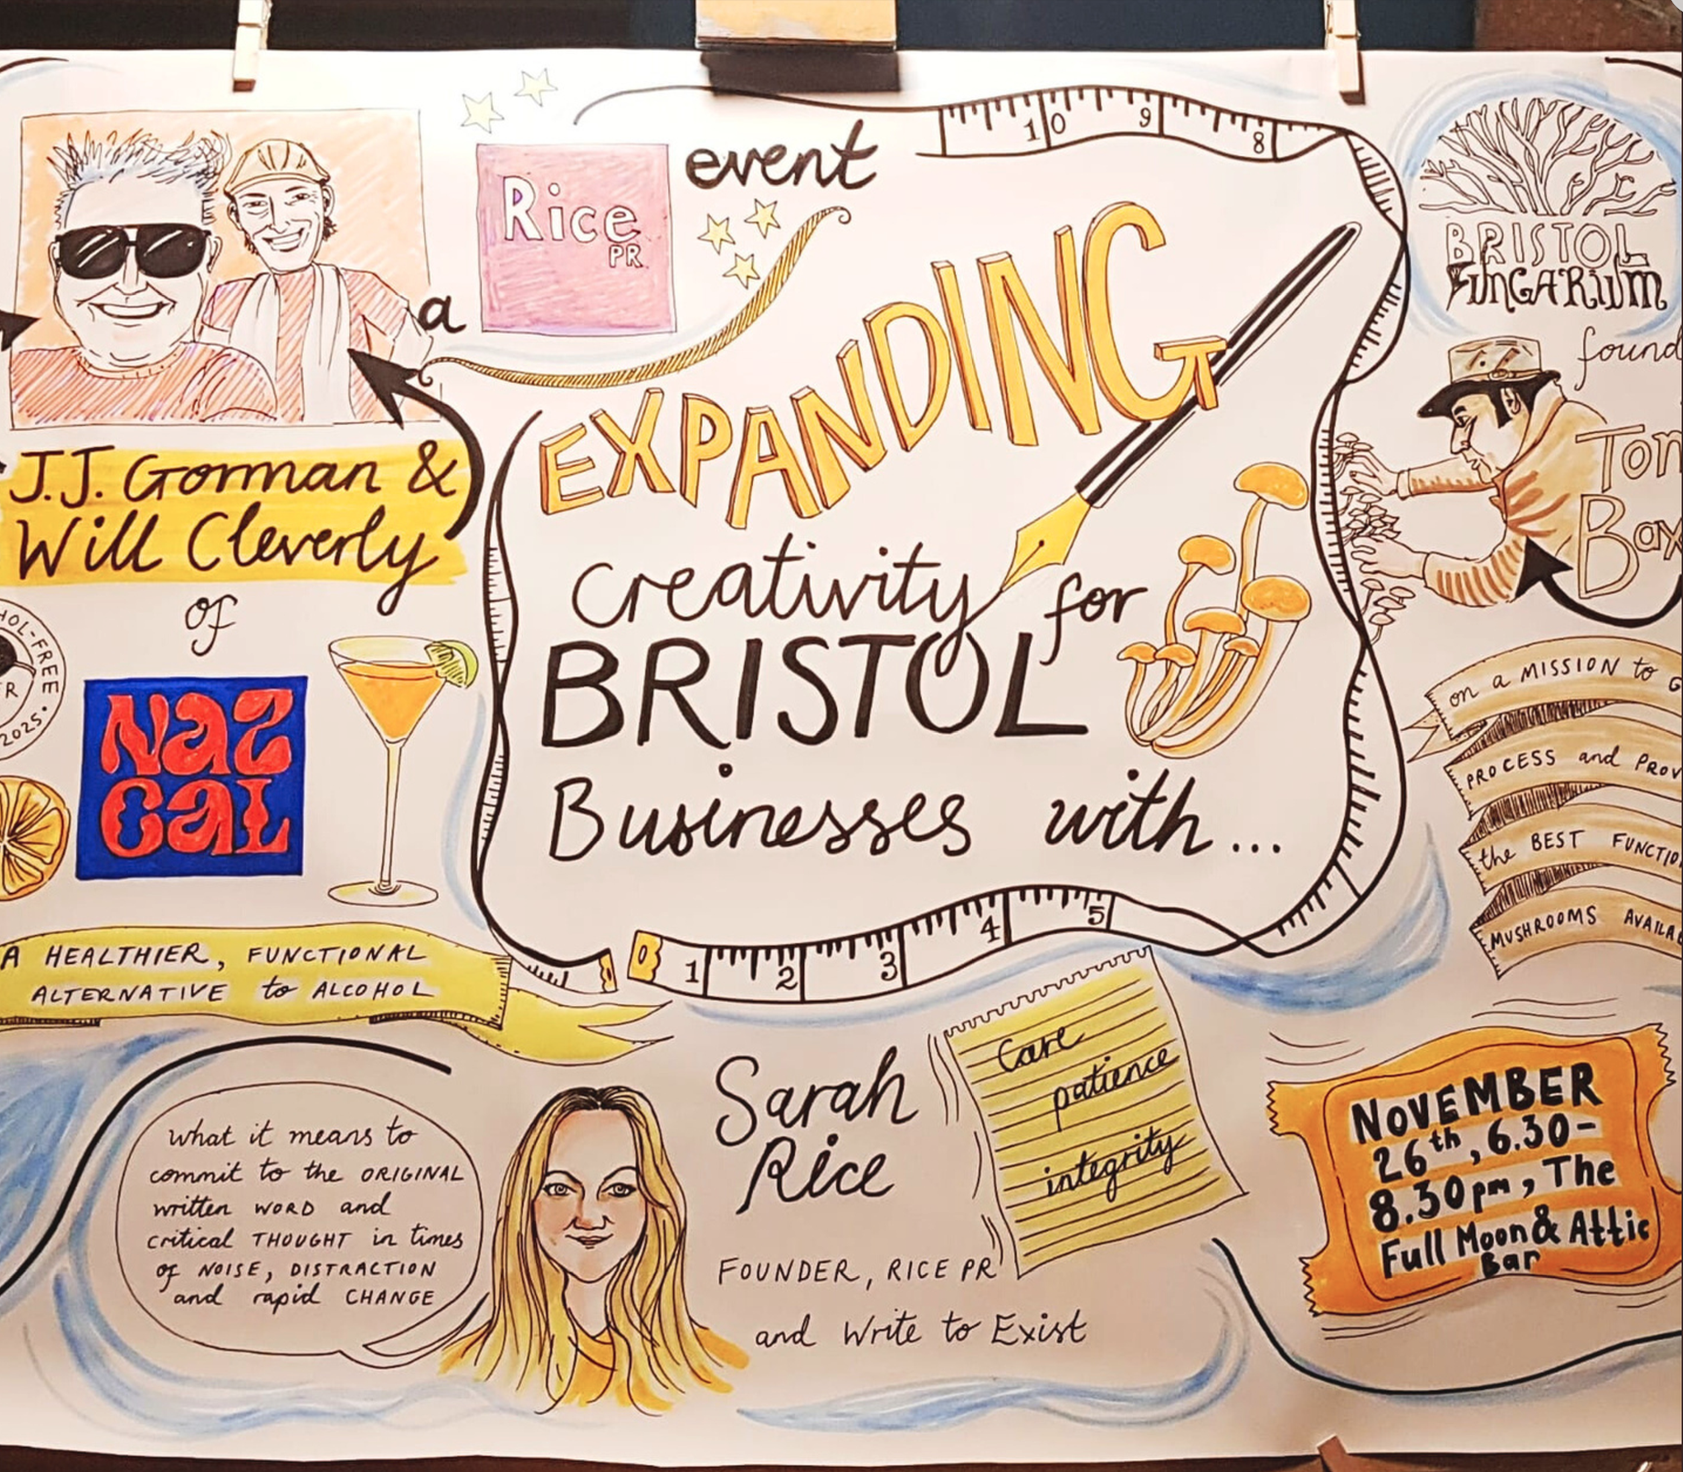 a
Rice
PR
event
10 9 8
EXPANDING
Creativity for
BRISTOL
Businesses with...
0 1 2 3 4 5
J.J. Gorman &
Will Cleverly
of
NAZ
CAL
HOL-FREE
2025.
A HEALTHIER, FUNCTIONAL
ALTERNATIVE to ALCOHOL
BRISTOL
FUNGARIUM
found
Tom
Bax
on a MISSION to G
PROCESS and PROV
the BEST FUNCTIO
MUSHROOMS AVAILAB
what it means to
commit to the ORIGINAL
written WORD and
critical THOUGHT in times
of NOISE, DISTRACTION
and rapid CHANGE
Sarah
Rice
FOUNDER, RICE PR
and Write to Exist
Care
patience
integrity
NOVEMBER
26th, 6.30-
8.30pm, The
Full Moon & Attic
Bar